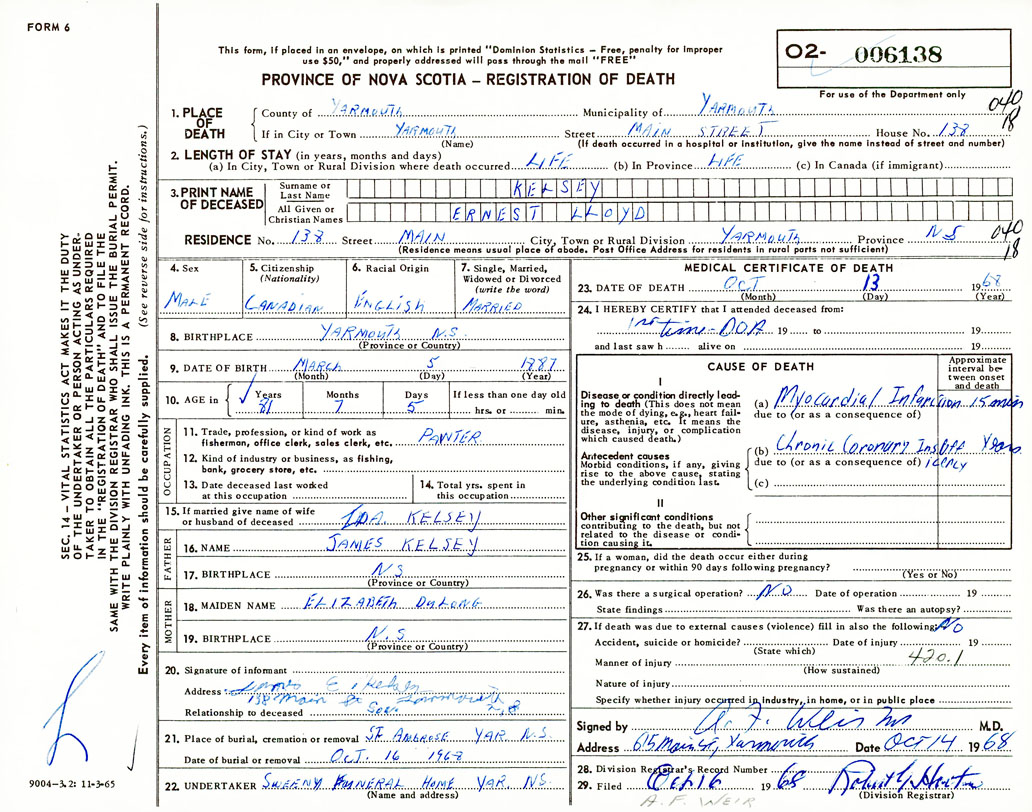 FORM 6
This form, if placed in an envelope, on which is printed "Dominion Statistics – Free, penalty for improper
use $50," and properly addressed will pass through the mail "FREE"
PROVINCE OF NOVA SCOTIA – REGISTRATION OF DEATH
O2- 006138
For use of the Department only
040
18
1. PLACE OF DEATH
County of YARMOUTH Municipality of YARMOUTH
If in City or Town YARMOUTH Street MAIN STREET House No. 138
(Name) (If death occurred in a hospital or institution, give the name instead of street and number)
2. LENGTH OF STAY (in years, months and days)
(a) In City, Town or Rural Division where death occurred LIFE (b) In Province LIFE (c) In Canada (if immigrant)
3. PRINT NAME OF DECEASED
Surname or Last Name KELSEY
All Given or Christian Names ERNEST LLOYD
RESIDENCE No. 138 Street MAIN City, Town or Rural Division YARMOUTH Province N S
040
18
(Residence means usual place of abode. Post Office Address for residents in rural parts not sufficient)
4. Sex MALE
5. Citizenship (Nationality) CANADIAN
6. Racial Origin ENGLISH
7. Single, Married, Widowed or Divorced (write the word) MARRIED
8. BIRTHPLACE YARMOUTH N.S.
(Province or Country)
9. DATE OF BIRTH MARCH 5 1887
(Month) (Day) (Year)
10. AGE in Years Months Days If less than one day old
81 7 5 hrs. or min.
OCCUPATION
11. Trade, profession, or kind of work as
fisherman, office clerk, sales clerk, etc. PAINTER
12. Kind of industry or business, as fishing,
bank, grocery store, etc.
13. Date deceased last worked
at this occupation
14. Total yrs. spent in
this occupation
15. If married give name of wife
or husband of deceased IDA KELSEY
FATHER
16. NAME JAMES KELSEY
17. BIRTHPLACE N S
(Province or Country)
MOTHER
18. MAIDEN NAME ELIZABETH DULONG
19. BIRTHPLACE N.S
(Province or Country)
20. Signature of informant
James E. Kelsey
Address 138 Main St Yarmouth N.S
Relationship to deceased Son
21. Place of burial, cremation or removal ST AMBROSE YAR N.S.
Date of burial or removal OCT. 16 1968
22. UNDERTAKER SWEENY FUNERAL HOME YAR. NS.
(Name and address)
MEDICAL CERTIFICATE OF DEATH
23. DATE OF DEATH OCT 13 1968
(Month) (Day) (Year)
24. I HEREBY CERTIFY that I attended deceased from:
1st time - DOA 19 to 19
and last saw h alive on 19
CAUSE OF DEATH
Approximate interval between onset and death
I
Disease or condition directly leading to death (This does not mean
the mode of dying, e.g., heart failure, asthenia, etc. It means the
disease, injury, or complication
which caused death.)
(a) Myocardial Infarction 15 min
due to (or as a consequence of)
Antecedent causes
Morbid conditions, if any, giving
rise to the above cause, stating
the underlying condition last.
(b) Chronic Coronary Insufficiency Years
due to (or as a consequence of)
(c)
II
Other significant conditions
contributing to the death, but not
related to the disease or condition causing it.
25. If a woman, did the death occur either during
pregnancy or within 90 days following pregnancy?
(Yes or No)
26. Was there a surgical operation? NO Date of operation 19
State findings Was there an autopsy?
27. If death was due to external causes (violence) fill in also the following: NO
Accident, suicide or homicide? Date of injury 19
(State which)
420.1
Manner of injury
(How sustained)
Nature of injury
Specify whether injury occurred in industry, in home, or in public place
Signed by A. F. Weir MD M.D.
Address 615 Main St, Yarmouth Date OCT 14 1968
28. Division Registrar's Record Number
29. Filed Oct 16 1968
(Division Registrar)
A. F. WEIR
SEC. 14 – VITAL STATISTICS ACT MAKES IT THE DUTY
OF THE UNDERTAKER OR PERSON ACTING AS UNDERTAKER TO OBTAIN ALL THE PARTICULARS REQUIRED
IN THE "REGISTRATION OF DEATH" AND TO FILE THE
SAME WITH THE DIVISION REGISTRAR WHO SHALL ISSUE THE BURIAL PERMIT.
WRITE PLAINLY WITH UNFADING INK. THIS IS A PERMANENT RECORD.
Every item of information should be carefully supplied. (See reverse side for instructions.)
9004–3.2: 11-3-65